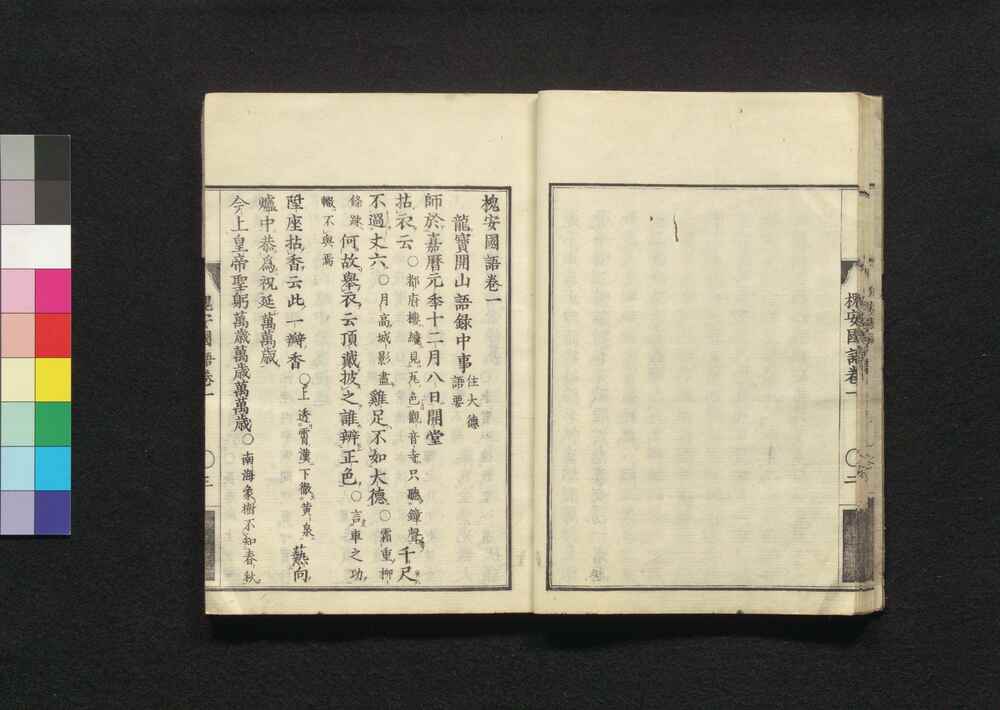 槐安國語卷一
槐安國語卷一
龍寶開山語錄中事
住大德
語要
師於嘉曆元季十二月八日開堂
拈衣云〇都府樓纔見瓦色觀音寺只聽鐘聲千尺
不過丈六〇月高城影盡雞足不如大德〇霜重柳
條疎何故舉衣云頂戴披之誰辨正色〇言車之功
輙不與焉
陞座拈香云此一瓣香〇上透霄漢下徹黃泉爇向
爐中恭爲祝延萬萬歲
今上皇帝聖躬萬歲萬歲萬萬歲〇南海象樹不知春秋
槐安國語卷一
〇三